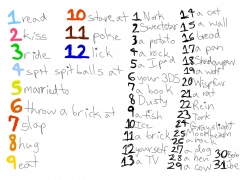 1 read
2 kiss
3 ride
4 spit spit balls at
5 married to
6 throw a brick at
7 slap
8 hug
9 eat
10 store at
11 poke
12 lick
1 Nork
2 Sweetstar
3 a potato
4 a rock
5 a iPad
6 your 3DS
7 a book
8 Dusty
9 a fish
10 Ice
11 a brick
12 yourself
13 a TV
14 a cat
15 a wall
16 bead
17 a pan
18
19 a wolf
20 Wispen
21 a rat
22 Rein
23 Tark
24
25
26
27 a dog
28 a hen
29 a cow
30 Bob
31